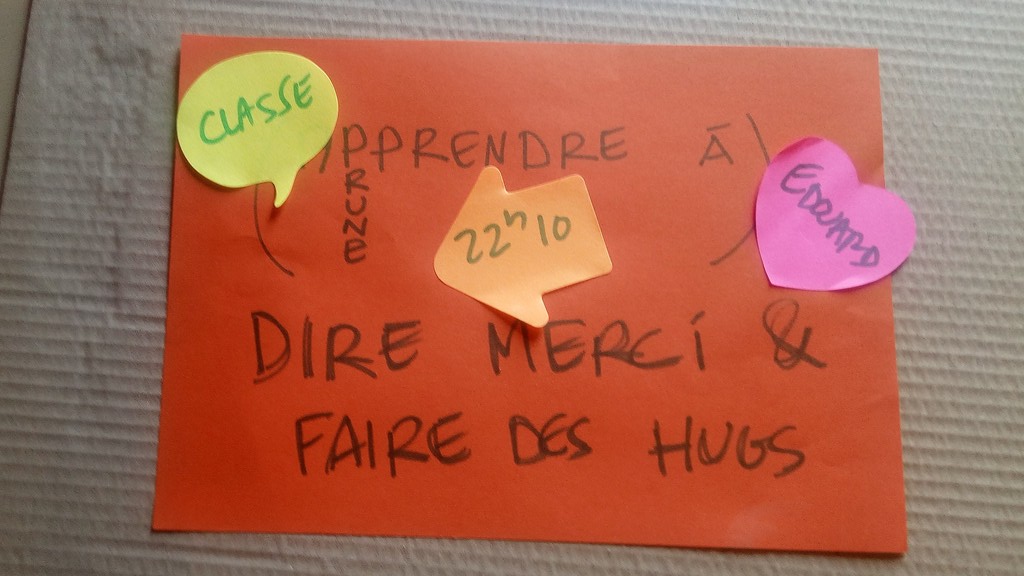 CLASSE
APPRENDRE À)
PRUNE
22h10
EDOUARD
DIRE MERCI &
FAIRE DES HUGS